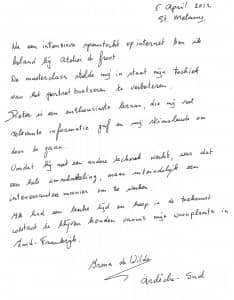 5 April 2012
St. Melany,
Na een intensieve speurtocht op internet ben ik
beland bij Atelier de Groot.
De masterclass stelde mij in staat mijn techniek
van het portret boetseren te verbeteren.
is een enthousiaste lerares, die mij veel
relevante informatie gaf en mij stimuleerde om
door te gaan.
Omdat zij met een andere techniek werkt, was dat
een hele omschakeling, maar uiteindelijk een
interessantere manier om te werken.
Ik had een leuke tijd en hoop in de toekomst
contact te blijven houden vanuit mijn woonplaats in
Zuid-Frankrijk.
de Wilde
Ardèche-Sud